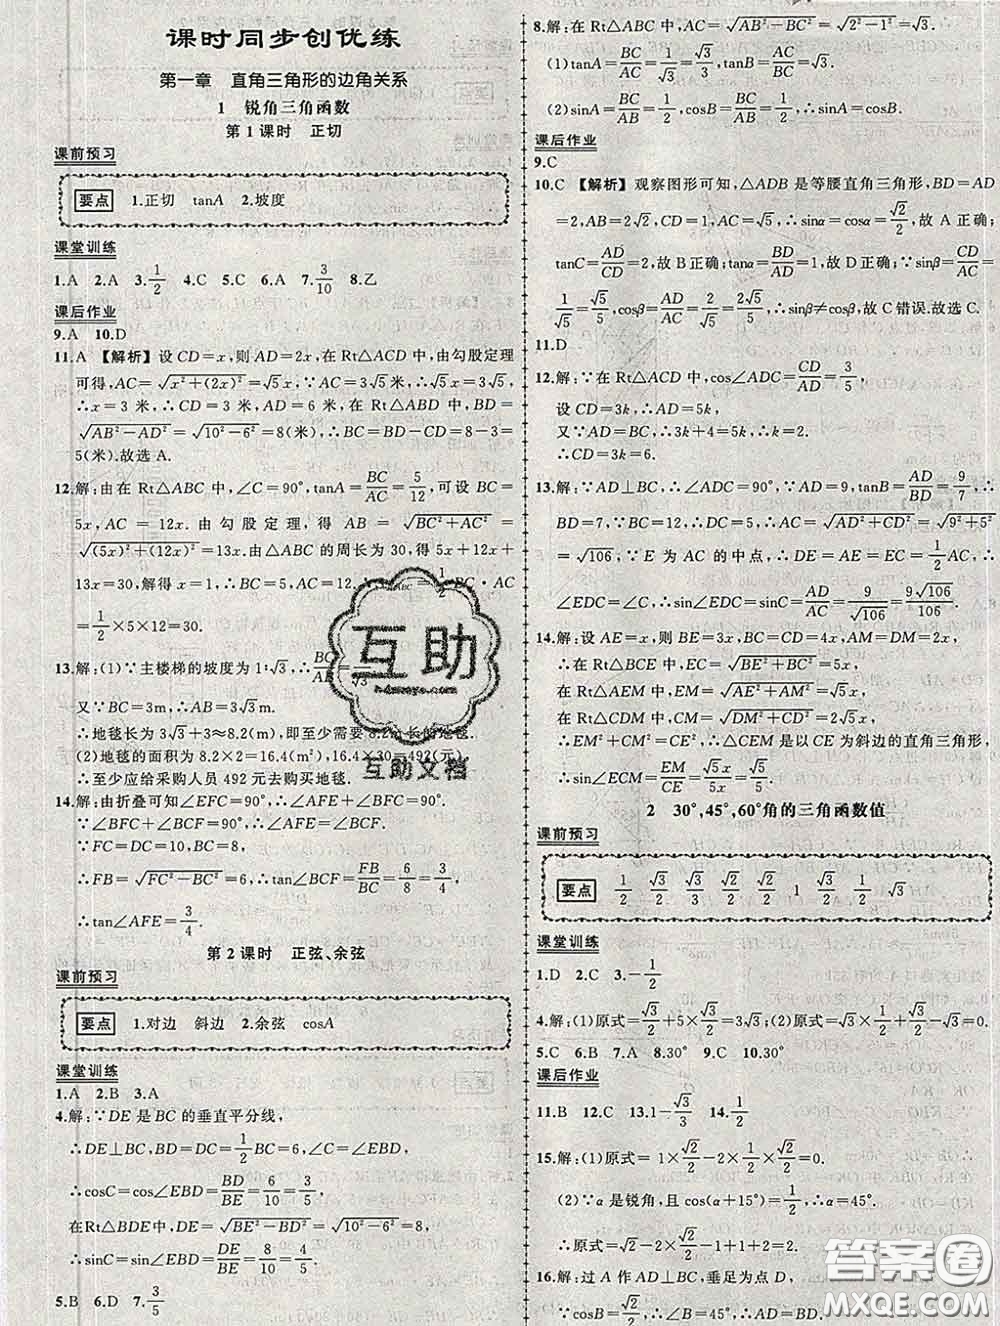 课时同步创优练
第一章 直角三角形的边角关系
1 锐角三角函数
第1课时 正切
课前预习
要点 1.正切 tanA 2.坡度
课堂训练
1.A 2.A 3.1/2 4.C 5.C 6.A 7.3/10 8.乙
课后作业
9.A 10.D
11.A 【解析】设CD=x,则AD=2x,在Rt△ACD中,由勾股定理
可得,AC=√(x²+(2x)²)=√5x,∵AC=3√5米,∴√5x=3√5,
∴x=3米,∴CD=3米,AD=6米,在Rt△ABD中,BD=
√(AB²-AD²)=√(10²-6²)=8(米),∴BC=BD-CD=8-3=
5(米).故选A.
12.解:由在Rt△ABC中,∠C=90°,tanA=BC/AC=5/12,可设BC=
5x,AC=12x.由勾股定理,得AB=√(BC²+AC²)=
√((5x)²+(12x)²)=13x.由△ABC的周长为30,得5x+12x+
13x=30,解得x=1.∴BC=5,AC=12. 1/2 BC·AC
=1/2×5×12=30.
13.解:(1)∵主楼梯的坡度为1:√3,∴BC/AB= /√3
又∵BC=3m,∴AB=3√3m.
∴地毯长为3√3+3≈8.2(m),即至少需要8.2m长的地毯.
(2)地毯的面积为8.2×2=16.4(m²),16.4×30=492(元)
∴至少应给采购人员492元去购买地毯.
14.解:由折叠可知∠EFC=90°,∴∠AFE+∠BFC=90°.
∵∠BFC+∠BCF=90°,∴∠AFE=∠BCF.
∵FC=DC=10,BC=8,
∴FB=√(FC²-BC²)=6,∴tan∠BCF=FB/BC=6/8=3/4,
∴tan∠AFE=3/4.
第2课时 正弦、余弦
课前预习
要点 1.对边 斜边 2.余弦 cosA
课堂训练
1.A 2.B 3.A
4.解:∵DE是BC的垂直平分线,
∴DE⊥BC,BD=DC=1/2BC=6,∠C=∠EBD,
∴cosC=cos∠EBD=BD/BE=6/10=3/5.
在Rt△BDE中,DE=√(BE²-BD²)=√(10²-6²)=8,
∴sinC=sin∠EBD=DE/BE=8/10=4/5.
5.B 6.D 7.3/5
8.解:在Rt△ABC中,AC=√(AB²-BC²)=√(2²-1²)=√3.
(1)tanA=BC/AC=1/√3=√3/3,tanB=AC/BC=√3/1=√3.
(2)sinA=BC/AB=1/2,cosB=BC/AB=1/2,∴sinA=cosB.
课后作业
9.C
10.C 【解析】观察图形可知,△ADB是等腰直角三角形,BD=AD
=2,AB=2√2,CD=1,AC=√5,∴sinα=cosα=√2/2,故A正确;
tanC=AD/CD=2,故B正确;tanα=BD/AD=1,故D正确;∵sinβ=CD/AC=
1/√5=√5/5,cosβ=AD/AC=2/√5=2√5/5,∴sinβ≠cosβ,故C错误.故选C.
11.D
12.解:∵在Rt△ACD中,cos∠ADC=CD/AD=3/5,
设CD=3k,∴AD=5k.
又∵BC=AD,∴3k+4=5k,∴k=2.
∴CD=3k=6.
13.解:∵AD⊥BC,∴∠ADC=90°,∴AD=9,tanB=AD/BD=9/7,∴
BD=7,∵BC=12,∴DC=5,∴AC=√(AD²+CD²)=√(9²+5²)
=√106,∵E为AC的中点,∴DE=AE=EC=1/2AC,∴
∠EDC=∠C,∴sin∠EDC=sinC=AD/AC=9/√106=9√106/106.
14.解:设AE=x,则BE=3x,BC=4x,AM=DM=2x,
∴在Rt△BCE中,EC=√(BE²+BC²)=5x,
在Rt△AEM中,EM=√(AE²+AM²)=√5x,
在Rt△CDM中,CM=√(DM²+CD²)=2√5x,
∴EM²+CM²=CE²,∴△CEM是以CE为斜边的直角三角形,
∴sin∠ECM=EM/CE=√5x/5x=√5/5.
2 30°,45°,60°角的三角函数值
课前预习
要点 1/2 √3/2 √3/3 √2/2 √2/2 1 √3/2 1/2 √3
课堂训练
1.D 2.C 3.-1/2
4.解:(1)原式=√3/2+5×√3/2=3√3;(2)原式=1/2×√3+√3/2-√3=0.
5.C 6.B 7.A 8.30° 9.C 10.30°
课后作业
11.B 12.C 13.1-√3/3 14.1/2
15.解:(1)原式=1×√2/2-1/2×√2=0.
(2)∵α是锐角,且cos(α+15°)=1/2,∴α=45°.
∴原式=√2-2×√2/2-1+1+2=2.
16.解:过A作AD⊥BC,垂足为点D,
∵cosB=√2/2,∴∠B=45°,∴AD=BD.
互助
互助文档
答案圈
MXQE.COM